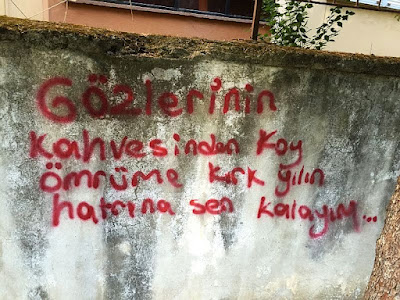 Gözlerinin
Kahvesinden Koy
ömrüme kırk yılın
hatrına sen kalayım...